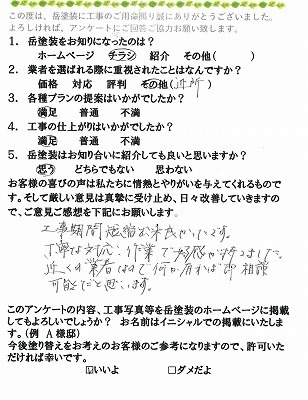 この度は、岳塗装に工事のご用命賜り誠にありがとうございました。
よろしければ、アンケートにご回答ご協力お願い致します。
1. 岳塗装をお知りになったのは？
ホームページ チラシ 紹介 その他( )
2. 業者を選ばれる際に重視されたことはなんですか？
価格 対応 評判 その他(近所)
3. 各種プランの提案はいかがでしたか？
満足 普通 不満
4. 工事の仕上がりはいかがでしたか？
満足 普通 不満
5. 岳塗装はお知り合いに紹介しても良いと思いますか？
思う どちらでもない 思わない
お客様の喜びの声は私たちに情熱とやりがいを与えてくれるものです。そして厳しい意見は真摯に受け止め、日々改善していきますので、ご意見ご感想を下記にお願いします。
工事期間 短縮出来良かったです。
丁寧な対応、作業で好感が持てました。
近くの業者なので何か有れば即相談
可能だと思います。
このアンケートの内容、工事写真等を岳塗装のホームページに掲載してもよろしいでしょうか？ お名前はイニシャルでの掲載にいたします。(例 A 様邸)
今後塗り替えをお考えのお客様のご参考になりますので、許可いただければ幸いです。
☑いいよ □ダメだよ